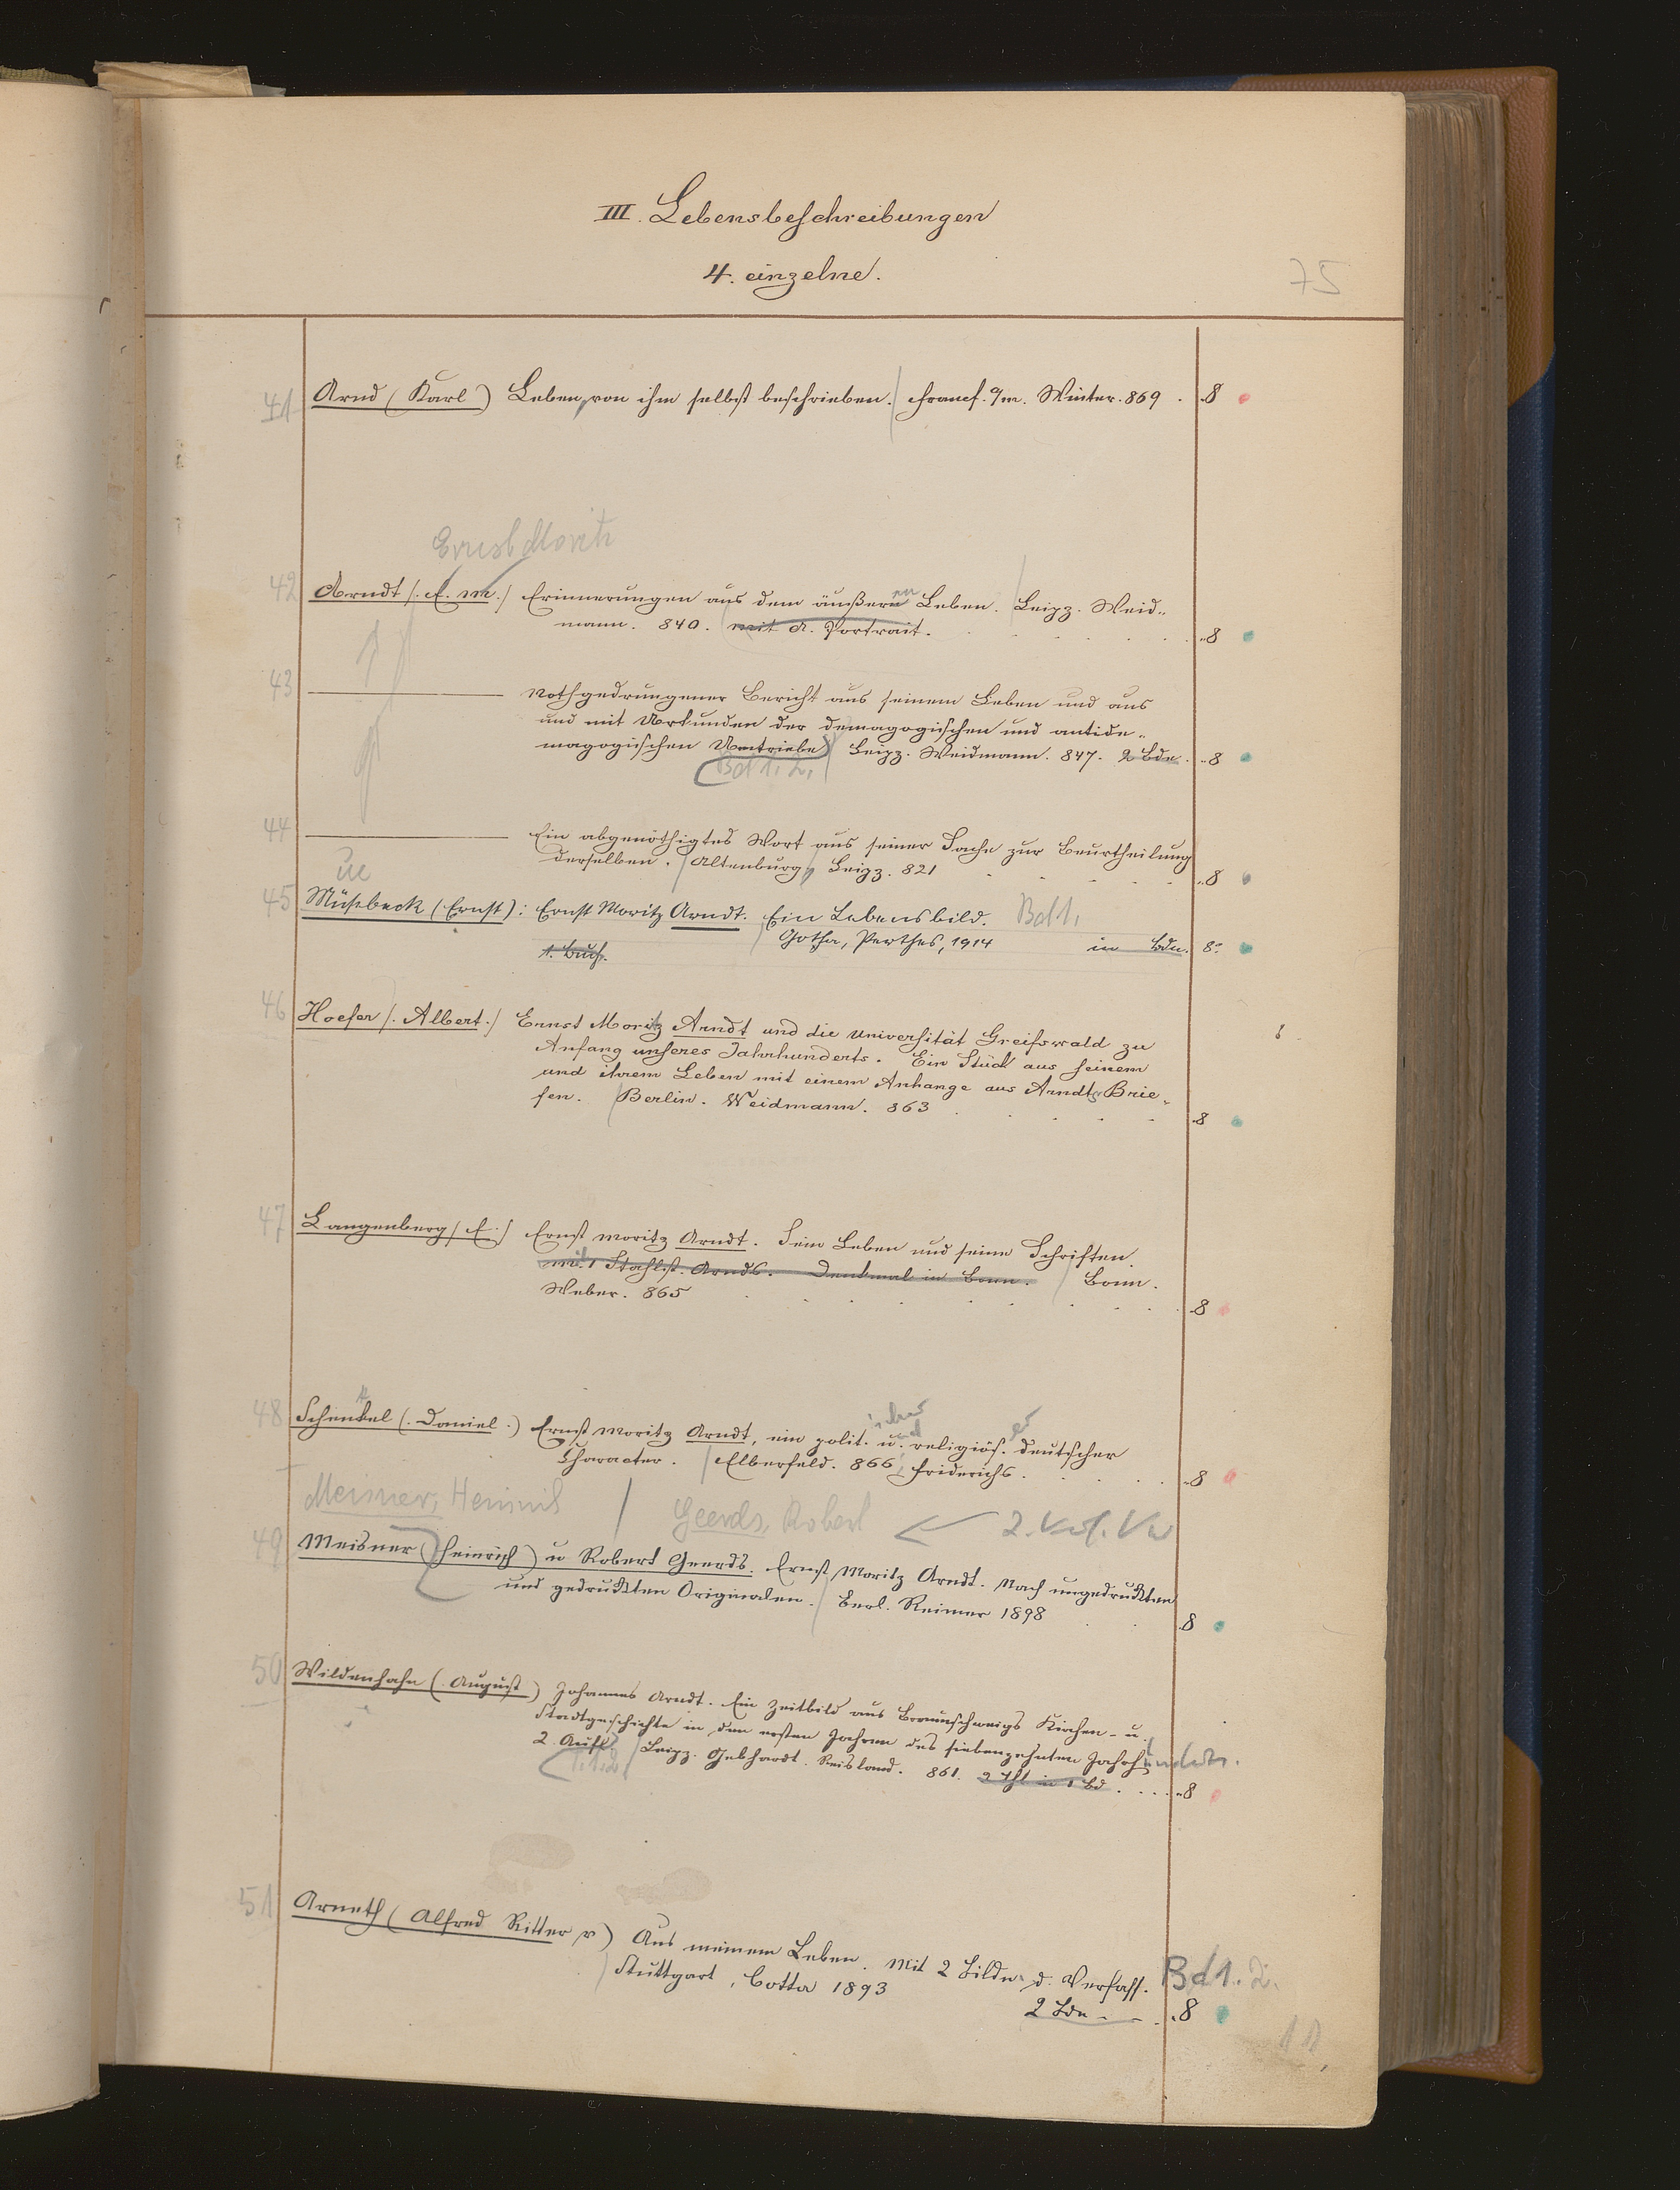 III. Lebensbeschreibungen
4. einzelne.
75
41 Arnd (Karl) Leben, von ihm selbst beschrieben. Francf. a/m. Winter. 869 . 8
Ernst Moritz
42 Arndt (. E. M.) Erinnerungen aus dem äußeren Leben. Leipz. Weid-
mann. 840. mit A. Portrait. 8
43 Nothgedrungener Bericht aus seinem Leben und aus
und mit Urkunden der demagogischen und antide-
magogischen Umtriebe Leipz. Weidmann. 847. 2 Bde. 8
Bd 1. 2.
44 Ein abgenöthigtes Wort aus seiner Sache zur Beurtheilung
derselben. Altenburg, Leipz. 821 8
ue
45 Müsebeck (Ernst): Ernst Moritz Arndt. Ein Lebensbild. Bd 1.
1. Buch. Gotha, Perthes, 1914 in Bdn. 8°
46 Hoefer (. Albert.) Ernst Moritz Arndt und die Universität Greifswald zu
Anfang unseres Jahrhunderts. Ein Stück aus seinem
und ihrem Leben mit einem Anhange aus Arndts Brie-
fen. Berlin. Weidmann. 863 8
47 Langenberg (E.) Ernst Moritz Arndt. Sein Leben und seine Schriften.
mit 1 Stahlst. Arnds. Denkmal in Bonn. Bonn.
Weber. 865 8
48 Schenkel (. Daniel .) Ernst Moritz Arndt, ein polit. u. religiös. deutscher
Character. Elberfeld. 866 Friderichs. 8
Meisner, Heinrich / Geerds, Robert 2. Verf. Vw
49 Meisner (Heinrich) u Robert Geerds. Ernst Moritz Arndt. Nach ungedruckten
und gedruckten Originalen. Berl. Reimer 1898 8
50 Wildenhahn (. August) Johannes Arndt. Ein Zeitbild aus Braunschweigs Kirchen- u.
Stadtgeschichte in den ersten Jahren des siebenzehnten Jahrhunderts.
2. Aufl. Leipz. Gebhardt. Reisland. 861. 2 Thl in 1 Bd. 8
T. 1. 2.
51 Arneth (Alfred Ritter v) Aus meinem Leben. Mit 2 Bildn. d. Verfass. Bd 1. 2.
Stuttgart, Cotta 1893
2 Bde 8
11.